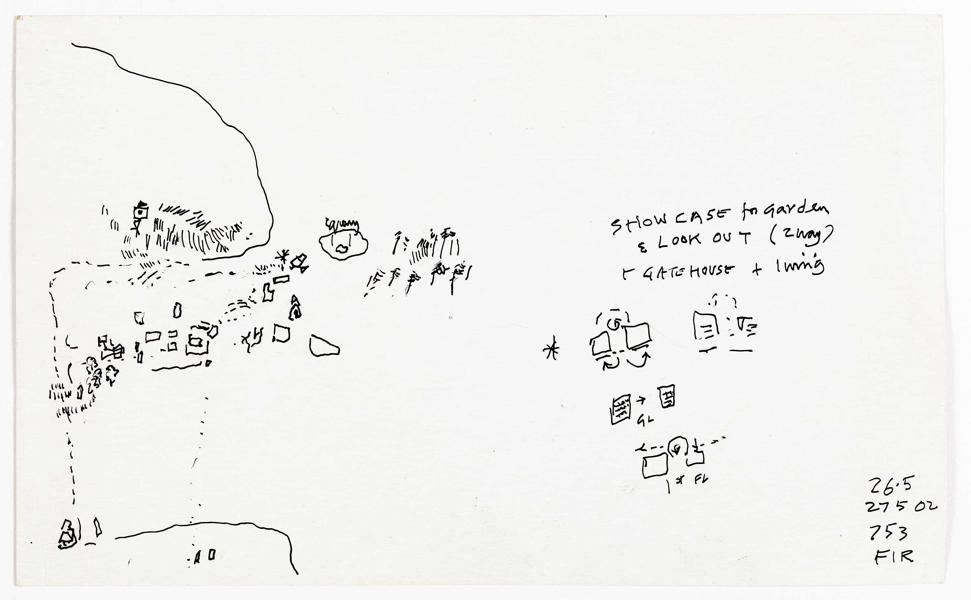 SHOWCASE to Garden
& LOOK OUT (2 way)
GATEHOUSE + living
GL
1st FL
26.5
27 5 02
753
FIR